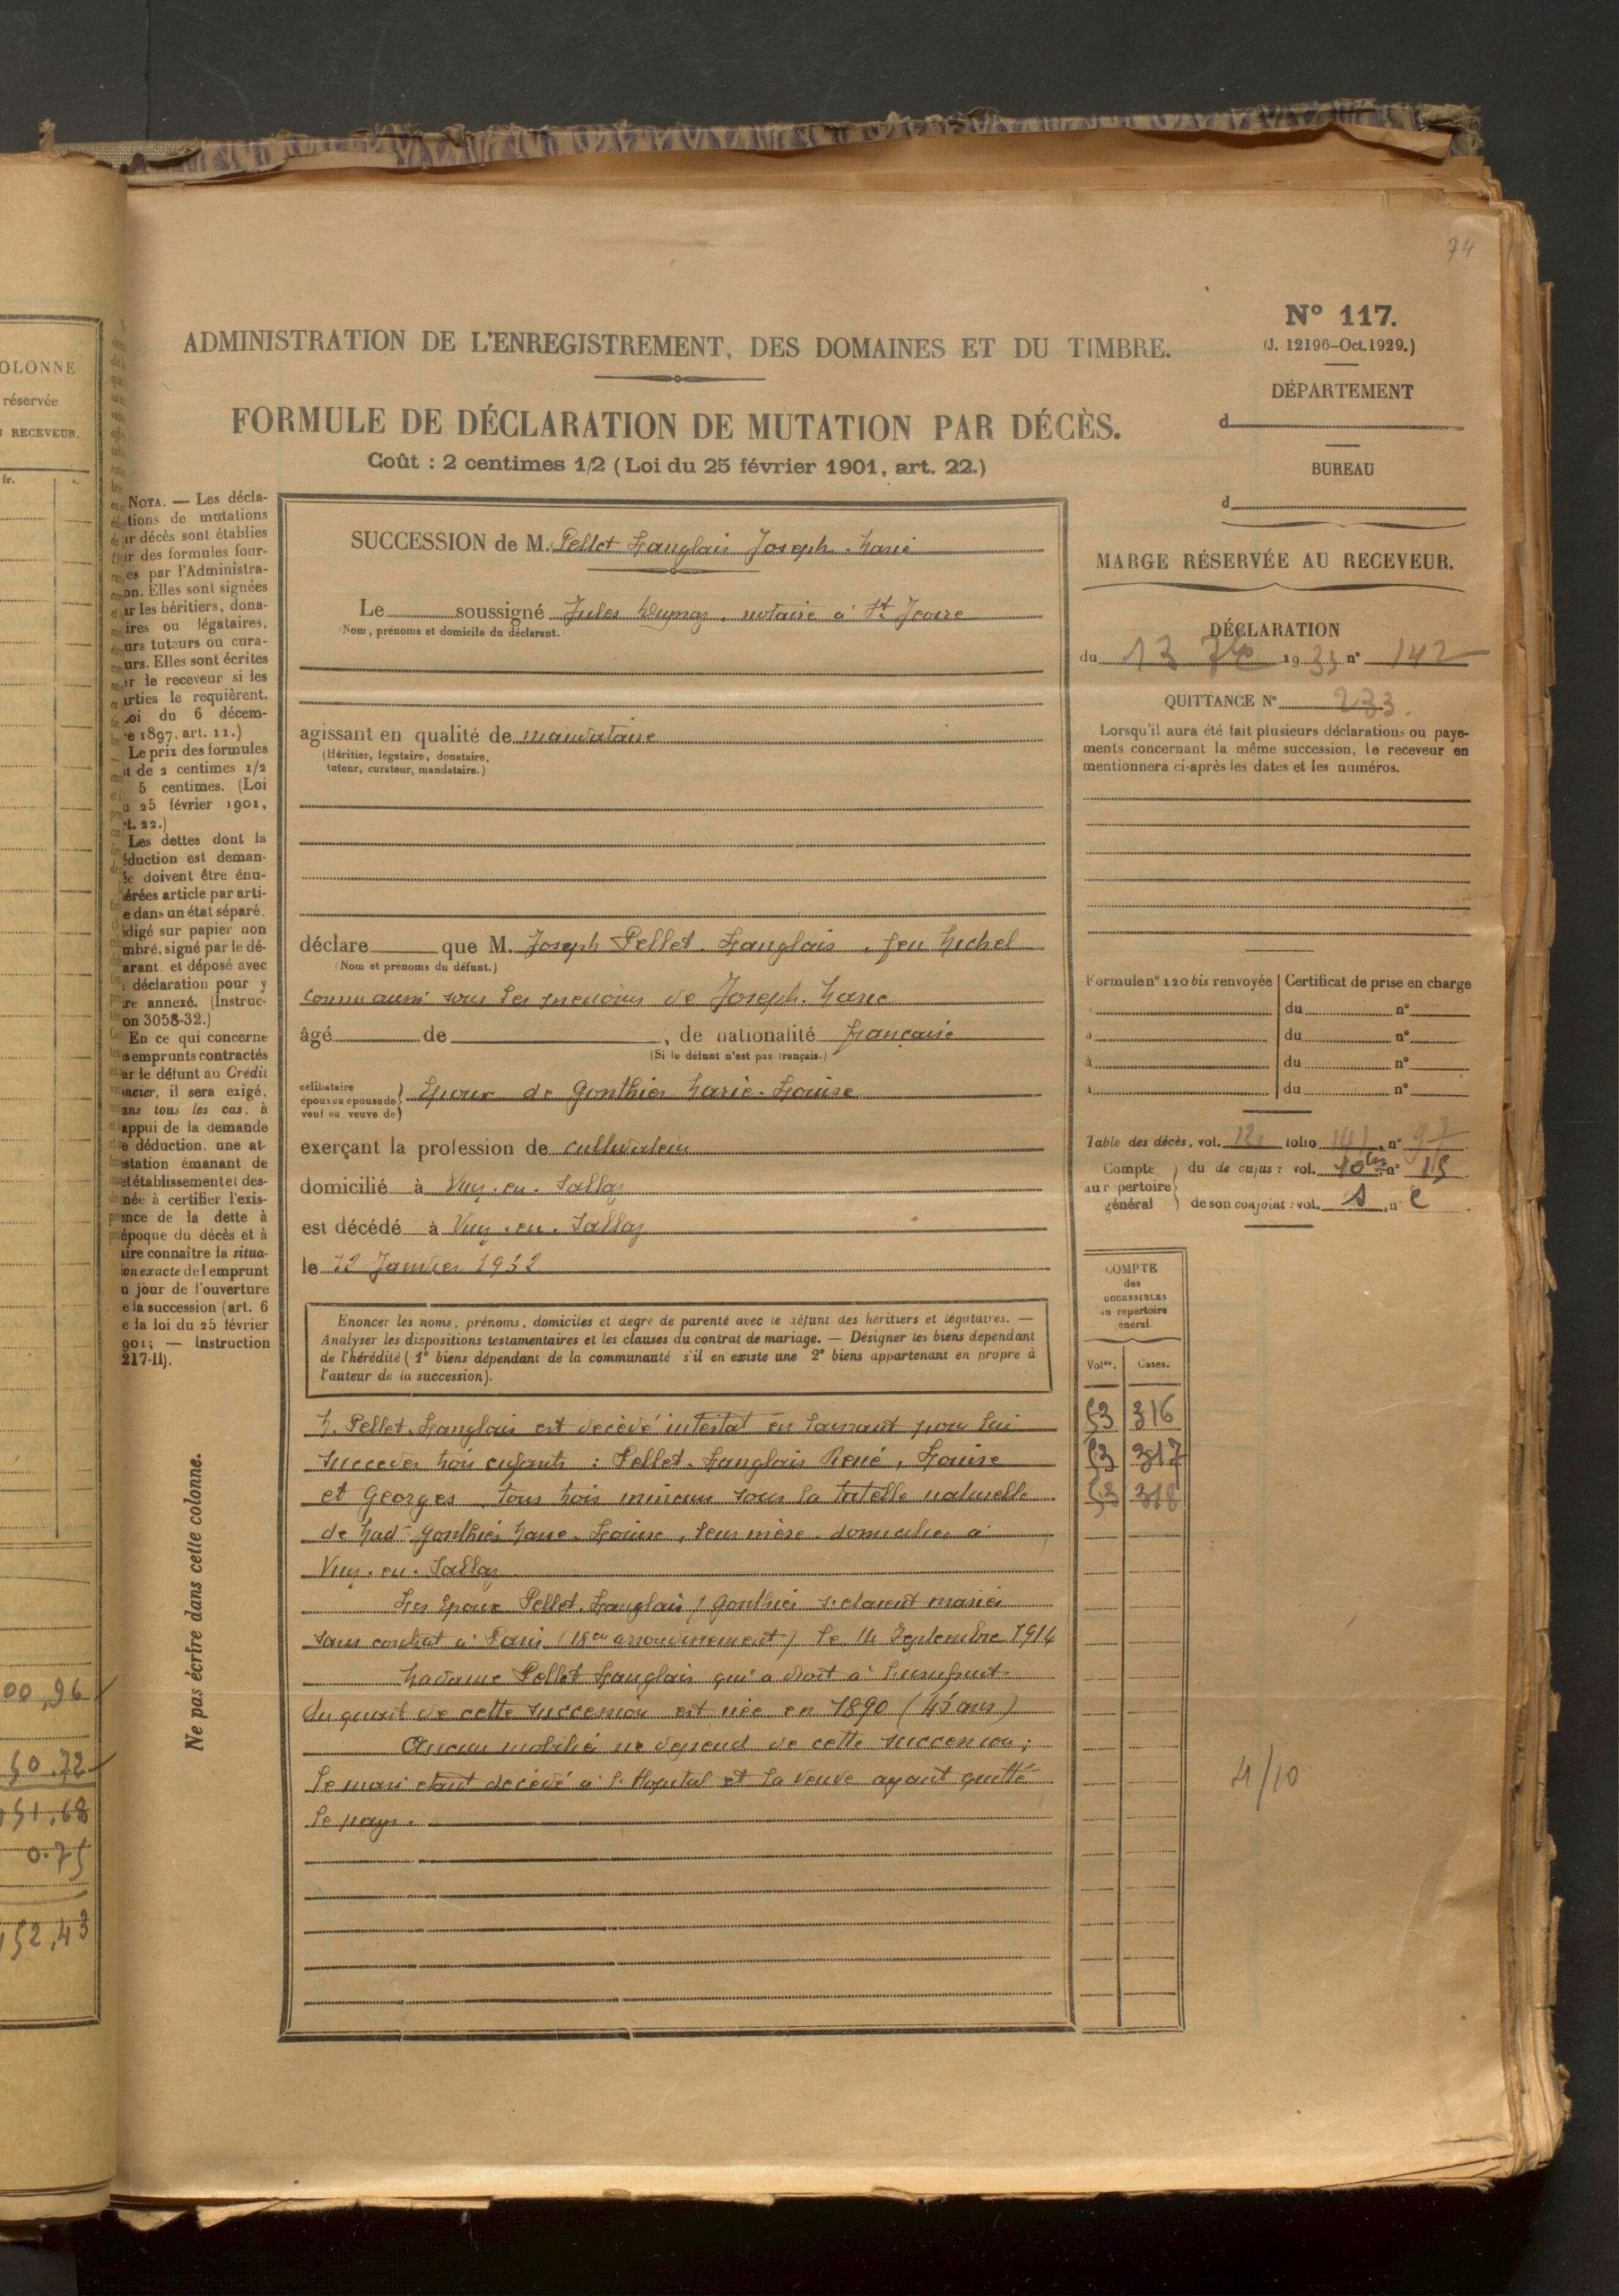 74
OLONNE
réservée
RECEVEUR.
fr.
00,96
50.72
151,68
0.75
152,43
ADMINISTRATION DE L'ENREGISTREMENT, DES DOMAINES ET DU TIMBRE.
FORMULE DE DÉCLARATION DE MUTATION PAR DÉCÈS.
Coût : 2 centimes 1/2 (Loi du 25 février 1901, art. 22.)
NOTA. — Les décla-
tions de mutations
ar décès sont établies
ur des formules four-
es par l'Administra-
on. Elles sont signées
ar les héritiers, dona-
ires ou légataires,
urs tuteurs ou cura-
urs. Elles sont écrites
ar le receveur si les
arties le requièrent.
oi du 6 décem-
e 1897, art. 11.)
Le prix des formules
t de 2 centimes 1/2
5 centimes. (Loi
u 25 février 1901,
t. 22.)
Les dettes dont la
éduction est deman-
ée doivent être énu-
érées article par arti-
e dans un état séparé,
digé sur papier non
mbré, signé par le dé-
arant, et déposé avec
déclaration pour y
re annexé. (Instruc-
on 3058-32.)
En ce qui concerne
s emprunts contractés
ar le défunt au Crédit
ncier, il sera exigé,
ans tous les cas, à
appui de la demande
e déduction, une at-
estation émanant de
et établissement et des-
inée à certifier l'exis-
ence de la dette à
époque du décès et à
ire connaître la situa-
ion exacte de l'emprunt
u jour de l'ouverture
e la succession (art. 6
e la loi du 25 février
901; — Instruction
217-II).
Ne pas écrire dans cette colonne.
SUCCESSION de M. Pellet Langlais Joseph. Marie
Le soussigné Jules Deymoz, notaire à St Jeoire
(Nom, prénoms et domicile du déclarant.)
agissant en qualité de mandataire
(Héritier, légataire, donataire,
tuteur, curateur, mandataire.)
déclare que M. Joseph Pellet. Langlais, feu Michel
(Nom et prénoms du défunt.)
connu aussi sous les prénoms de Joseph. Marie
âgé de , de nationalité française
(Si le défunt n'est pas français.)
célibataire
époux ou épouse de
veuf ou veuve de
Epoux de Gonthier Marie-Louise
exerçant la profession de cultivateur
domicilié à Viuz. en. Sallaz
est décédé à Viuz. en. Sallaz
le 12 Janvier 1932
Énoncer les noms, prénoms, domiciles et degré de parenté avec le défunt des héritiers et légataires. —
Analyser les dispositions testamentaires et les clauses du contrat de mariage. — Désigner les biens dépendant
de l'hérédité (1° biens dépendant de la communauté s'il en existe une 2° biens appartenant en propre à
l'auteur de la succession).
M. Pellet. Langlais est décédé intestat en laissant pour lui
succéder trois enfants : Pellet. Langlais René, Louise
et Georges, tous trois mineurs sous la tutelle naturelle
de Mad. Gonthier Marie. Louise, leur mère. domiciliée à
Viuz. en. Sallaz
Les Epoux Pellet. Langlais / Gonthier s'étaient mariés
sans contrat à Paris (18e arrondissement) le 14 Septembre 1914
Madame Pellet Langlais qui a droit à l'usufruit
du quart de cette succession est née en 1890 (45 ans)
Aucun mobilier ne dépend de cette succession ;
le mari étant décédé à l'Hôpital et la veuve ayant quitté
le pays.
N° 117.
(J. 12196-Oct. 1929.)
DÉPARTEMENT
d
BUREAU
d
MARGE RÉSERVÉE AU RECEVEUR.
DÉCLARATION
du 13 1933 n° 142
QUITTANCE N° 233.
Lorsqu'il aura été fait plusieurs déclarations ou paye-
ments concernant la même succession, le receveur en
mentionnera ci-après les dates et les numéros.
Formule n° 120 bis renvoyée Certificat de prise en charge
du n°
à du n°
à du n°
à du n°
Table des décès, vol. folio n° 97
Compte
au répertoire
général
du de cujus : vol. 10bis n° 15
de son conjoint : vol. n°
COMPTE
des
SUCCESSIBLES
au répertoire
général.
Voles. Cases.
53 316
53 317
53 318
4/10